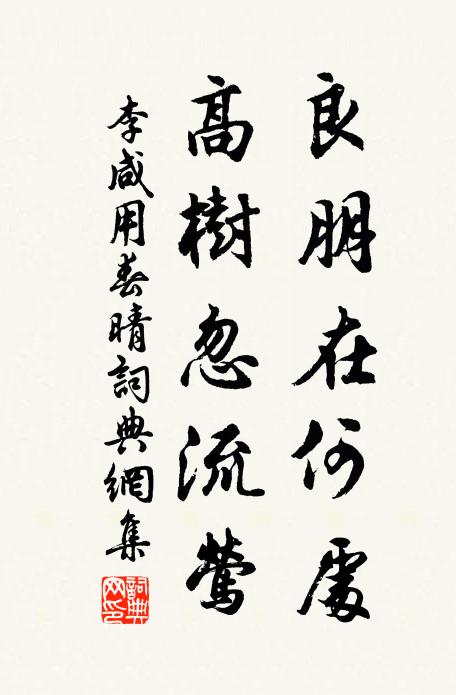 良朋在何處
高樹忽流鶯
李咸用春晴詞典網集
詞典網印